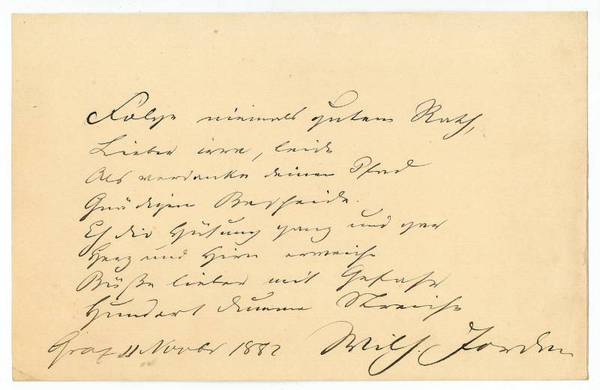 Folge niemals gutem Rath,
Lieber irre, leide
Als verdanke deinen Pfad
Gnädigem Bescheide.
Eh dir Hütung ganz und gar
Herz und Hirn erweiche
Büße lieber mit Gefahr
Hundert dumme Streiche
Graz 11 Novbr 1882 Wilh. Jordan